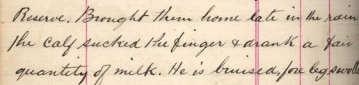 Reserve. Brought them home late in the rain
the calf sucked the finger & drank a fair
quantity of milk. He is bruised, fore leg swolle